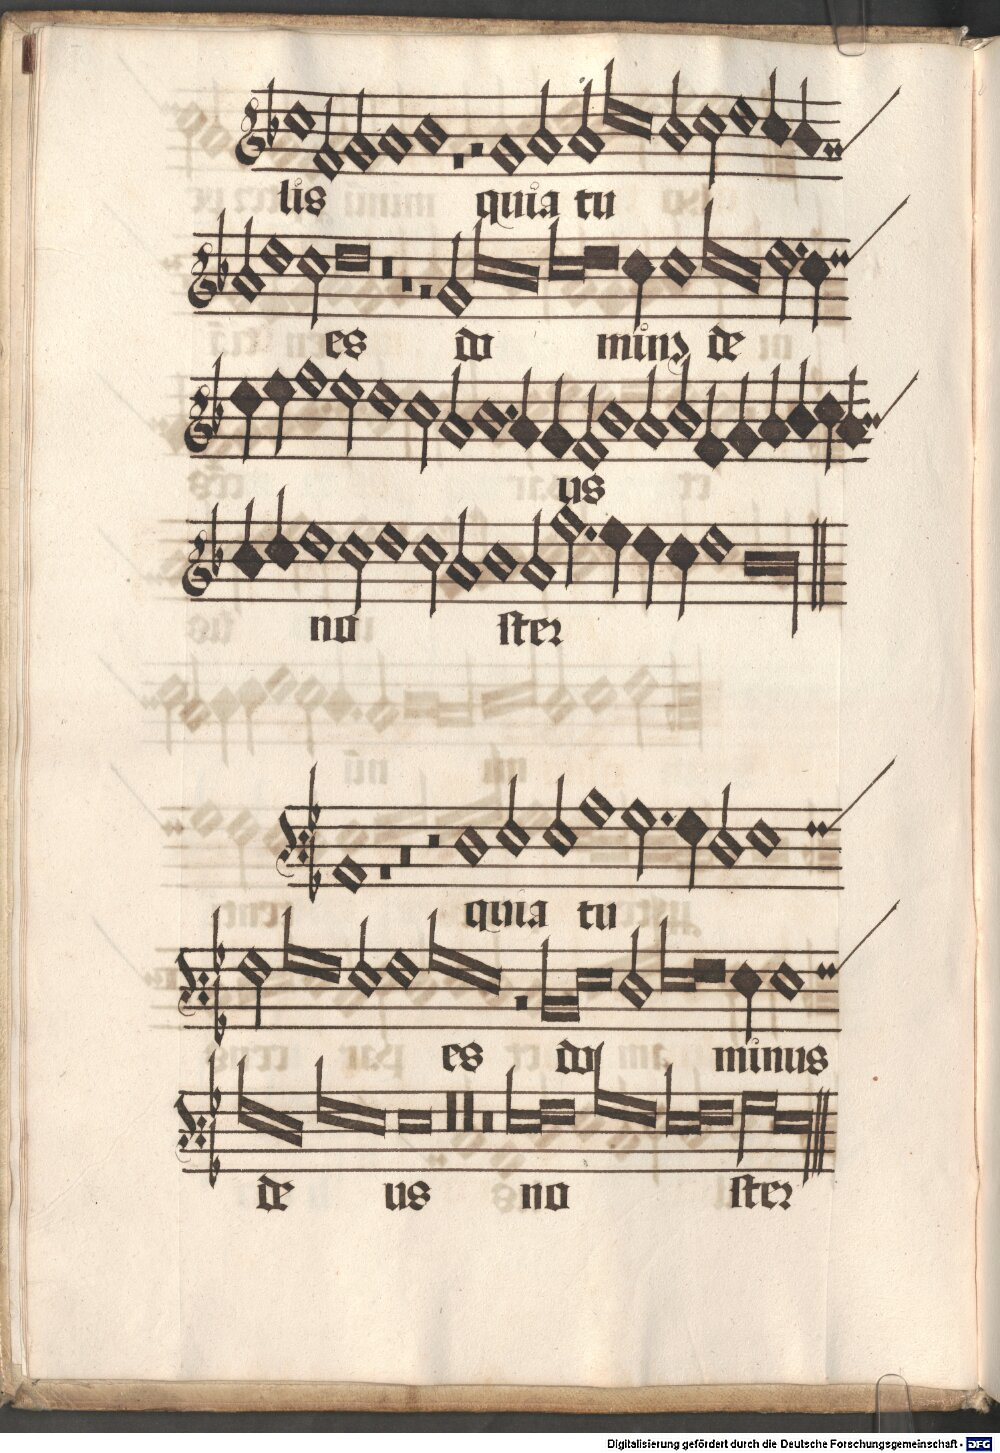 lis quia tu
es do minꝰ de
us
no ster
quia tu
es do minus
de us no ster
Digitalisierung gefördert durch die Deutsche Forschungsgemeinschaft - DFG